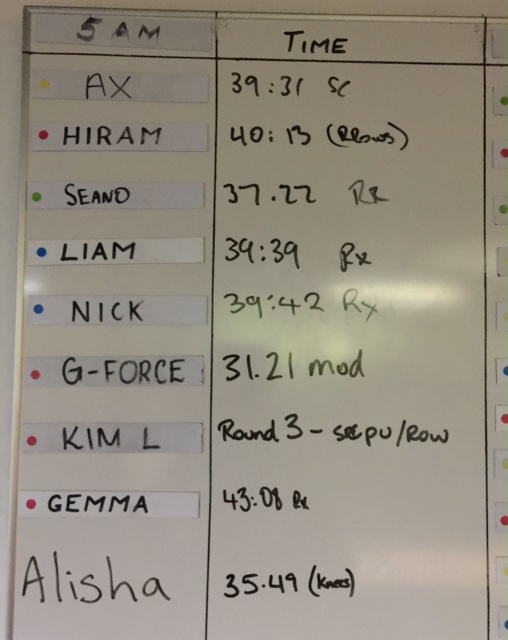 5 AM TIME
AX 39:31 SC
HIRAM 40:13 (RRows)
SEANO 37.22 Rx
LIAM 39:39 Rx
NICK 39:42 Rx
G-FORCE 31.21 mod
KIM L Round 3 - pu/Row
GEMMA 43:08 Rx
Alisha 35.49 (Knees)